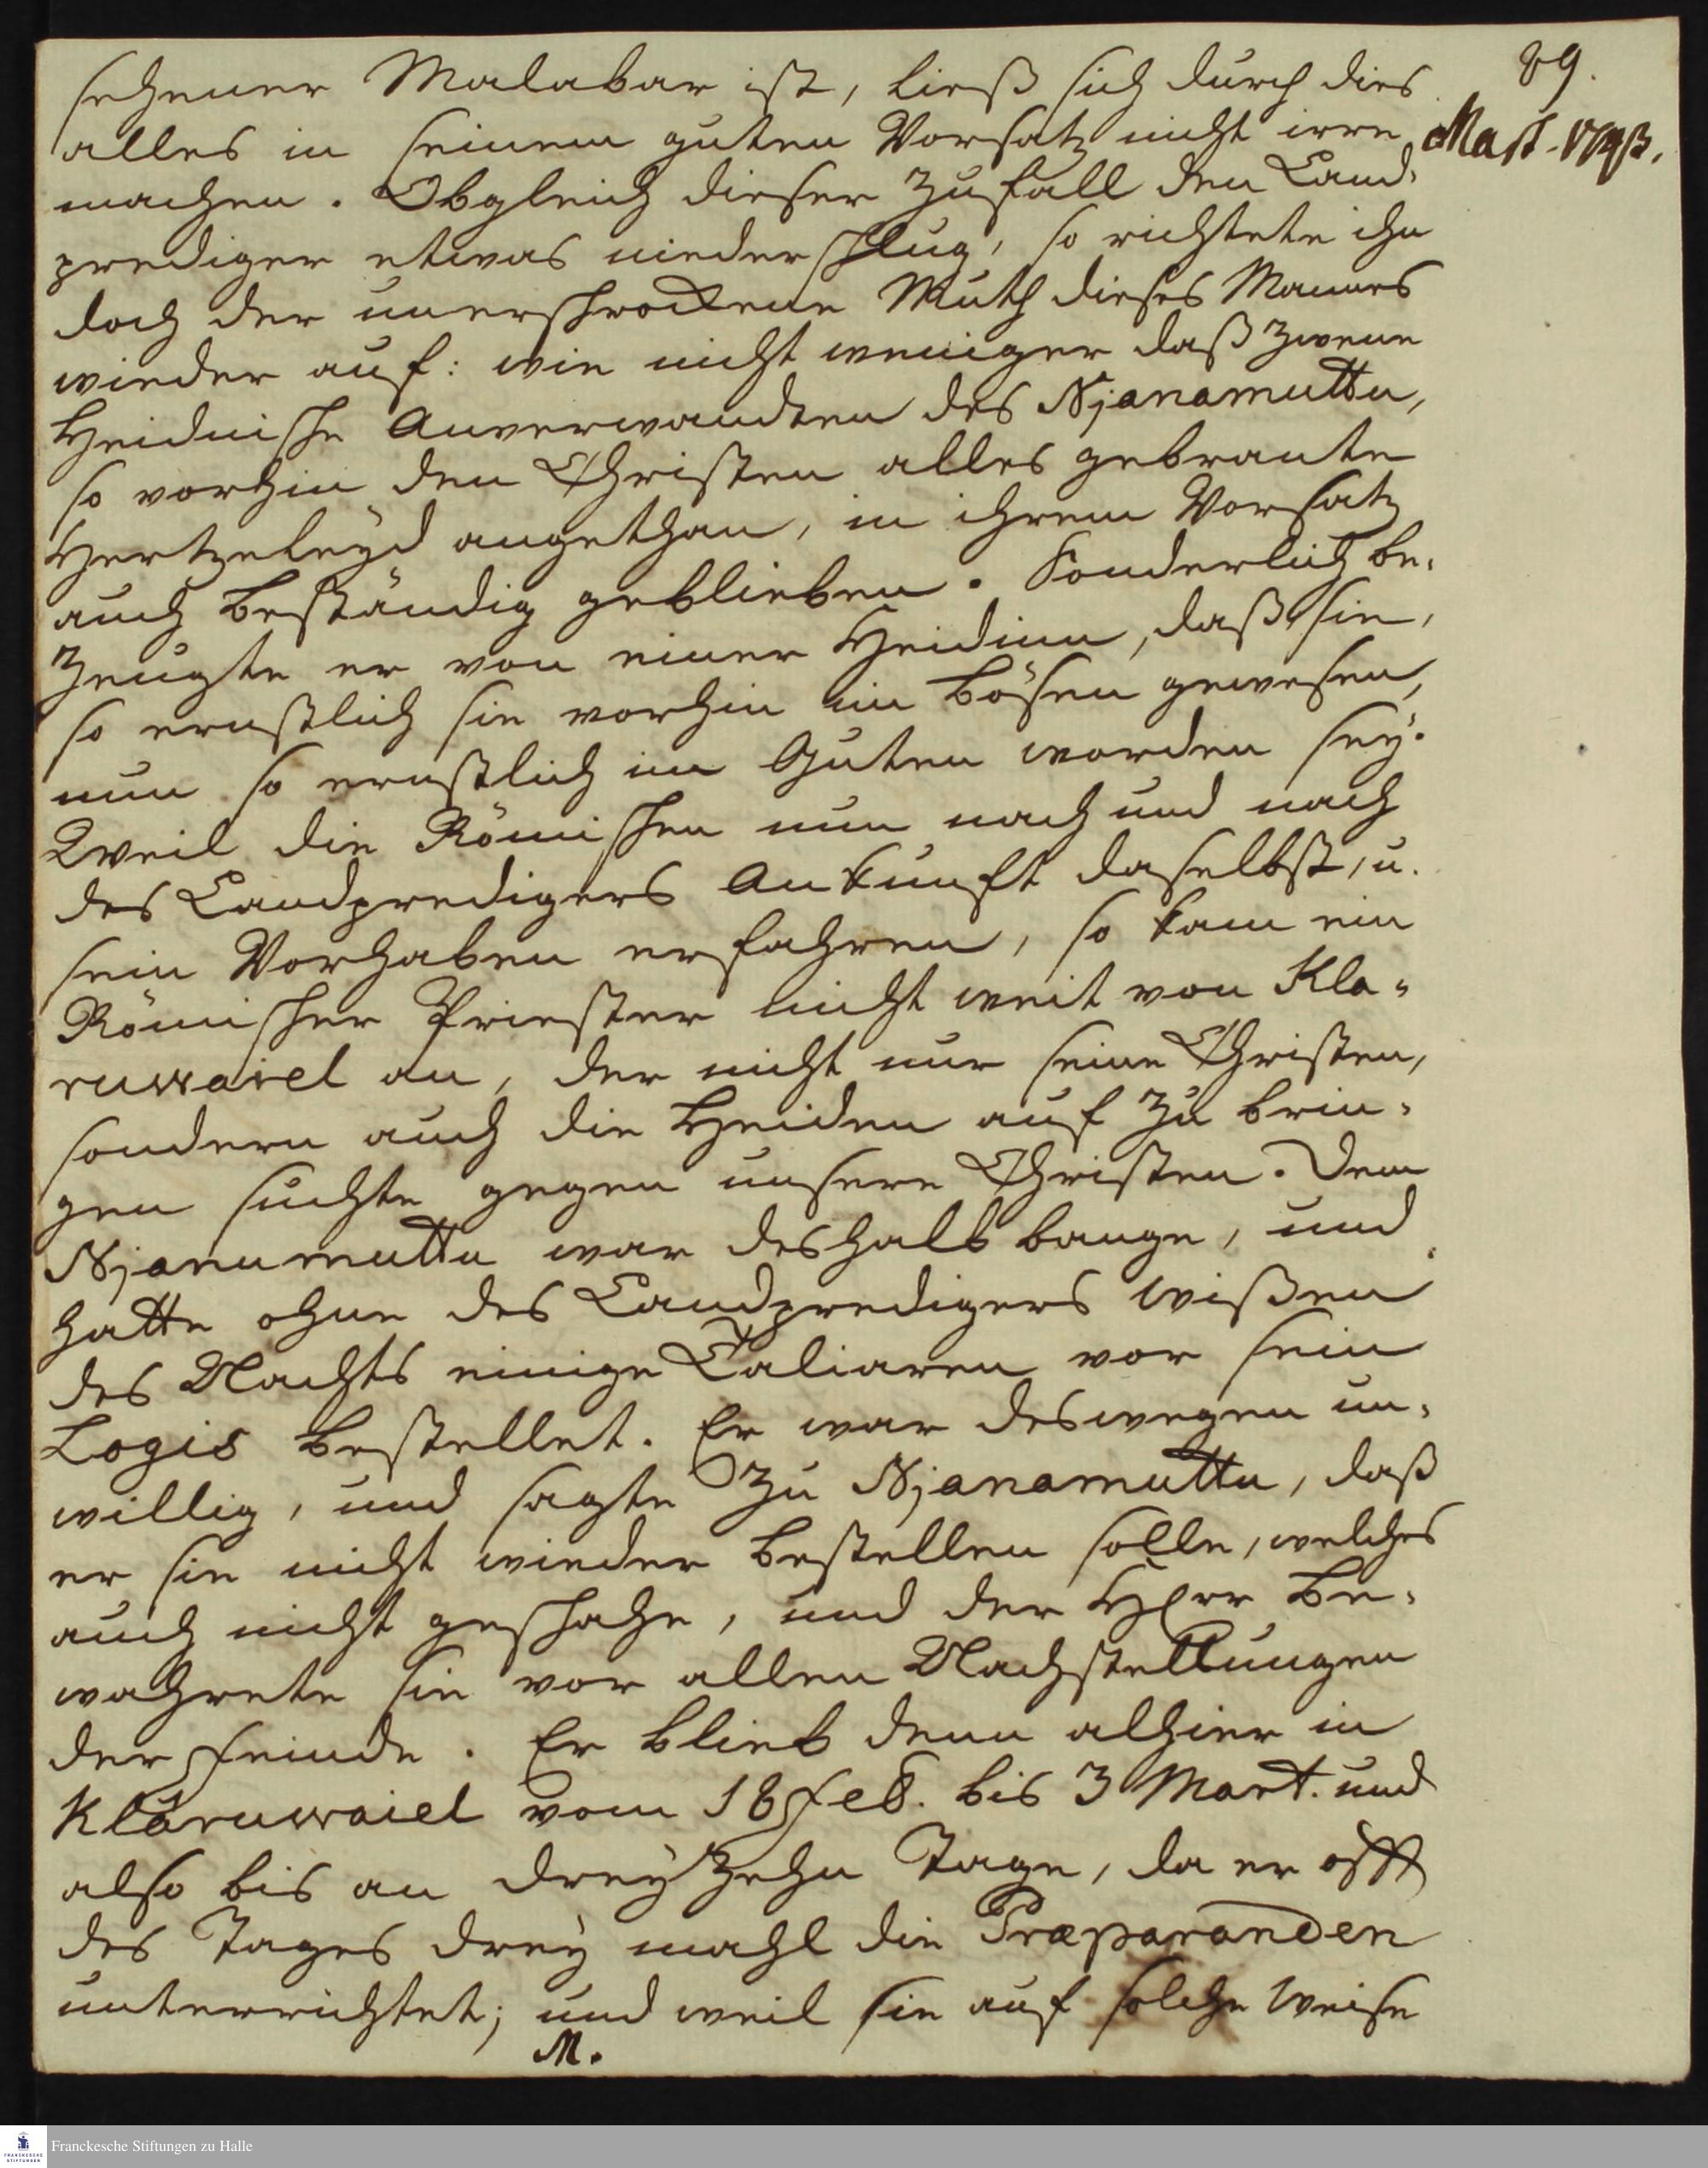 89.
Mart. 1743.
sehener Malabar ist, ließ sich durch dies
alles in seinem guten Vorsatz nicht irre
machen. Obgleich dieser Zufall den Land-
prediger etwas niederschlug, so richtete ihn
doch der unerschrockene Muth dieses Mannes
wieder auf: wie nicht weniger daß zweene
Heidnische Anverwandten des Njanamuttu,
so vorhin den Christen alles gebrante
Hertzeleyd angethan, in ihrem Vorsatz
auch beständig geblieben. Sonderlich be-
zeugte er von einer Heidinn, daß sie,
so ernstlich sie vorhin im Bösen gewesen,
nun so ernstlich im Guten worden sey.
Weil die Römischen nun nach und nach
des Landpredigers Ankunft daselbst, u.
sein Vorhaben erfahren, so kam ein
Römischer Priester nicht weit von Kla-
ruwaiel an, der nicht nur seine Christen,
sondern auch die Heiden auf zu brin-
gen suchte gegen unsere Christen. Dem
Njanamuttu war deshalb bange, und
hatte ohne des Landpredigers Wißen
des Nachts einige Taliaren vor sein
Logis bestellet. Er war deswegen un-
willig, und sagte zu Njanamuttu, daß
er sie nicht wieder bestellen solle, welches
auch nicht geschahe, und der HErr be-
wahrete sie vor allen Nachstellungen
der Feinde. Er blieb denn alhier in
Klaruwaiel vom 18 Feb. bis 3 Mart. und
also bis an dreyzehn Tage, da er offt
des Tages drey mahl die Præparanden
unterrichtet; und weil sie auf solche Weise
M.
Franckesche Stiftungen zu Halle